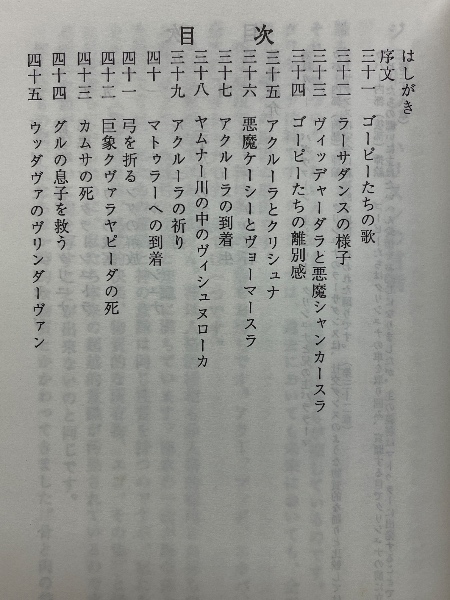 目次
はしがき
序文
三十一 ゴーピーたちの歌
三十二 ラーサダンスの様子
三十三 ヴィッデャーダラと悪魔シャンカースラ
三十四 ゴーピーたちの離別感
三十五 アクルーラとクリシュナ
三十六 悪魔ケーシーとヴョーマースラ
三十七 アクルーラの到着
三十八 ヤムナー川の中のヴィシュヌローカ
三十九 アクルーラの祈り
四十 マトゥラーへの到着
四十一 弓を折る
四十二 巨象クヴァラヤピーダの死
四十三 カムサの死
四十四 グルの息子を救う
四十五 ウッダヴァのヴリンダーヴァン